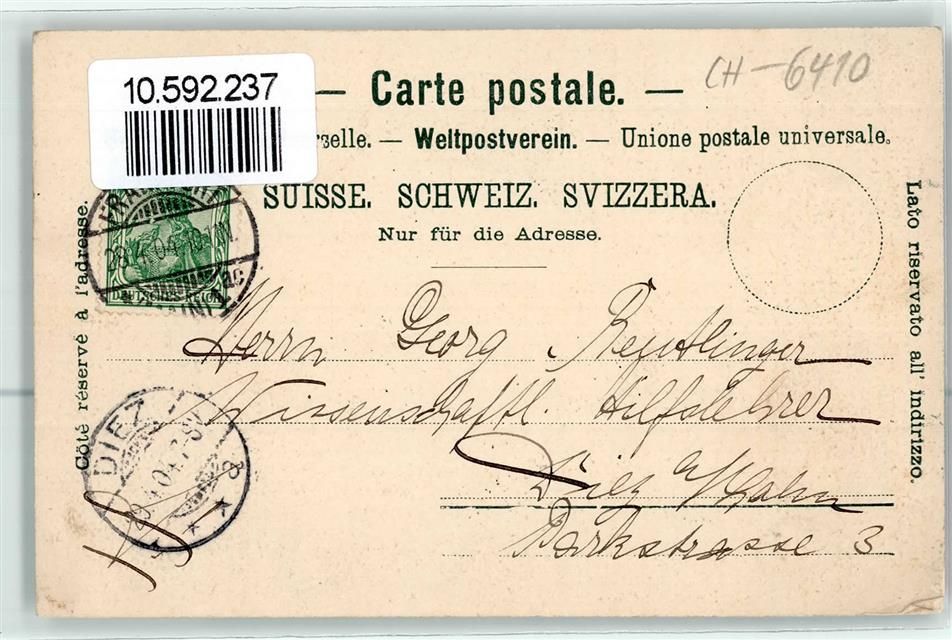 10.592.237
CH-6410
— Carte postale. —
rselle. — Weltpostverein. — Unione postale universale.
SUISSE. SCHWEIZ. SVIZZERA.
Nur für die Adresse.
Côté réservé à l'adresse.
Lato riservato all' indirizzo.
28.4.04
DEUTSCHES REICH
Herrn Georg Reutlinger
Wissenschaftl. Hilfslehrer
Diez a/Lahn
Parkstrasse 3
DIEZ